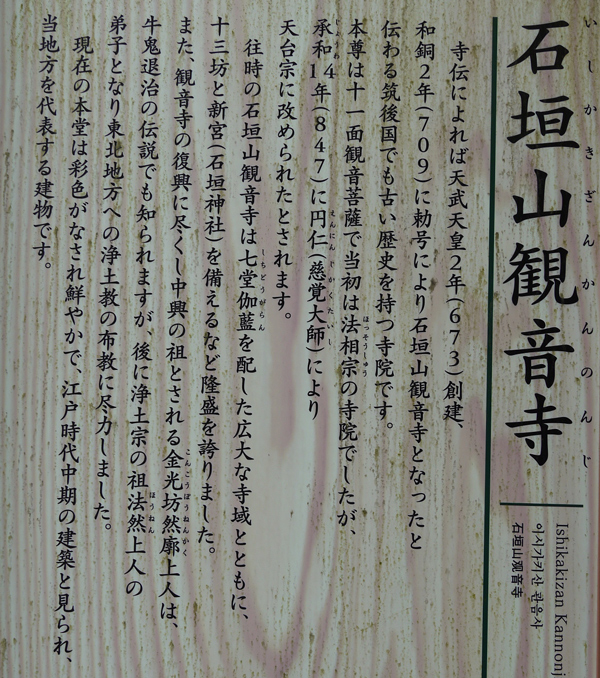 いしかきざんかんのんじ
石垣山観音寺
Ishikakizan Kannonj
이시가키산 관음사
石垣山观音寺
寺伝によれば天武天皇2年(673)創建、
和銅2年(709)に勅号により石垣山観音寺となったと
伝わる筑後国でも古い歴史を持つ寺院です。
本尊は十一面観音菩薩で当初は法相宗の寺院でしたが、
承和14年(847)に円仁(慈覚大師)により
天台宗に改められたとされます。
往時の石垣山観音寺は七堂伽藍を配した広大な寺域とともに、
十三坊と新宮(石垣神社)を備えるなど隆盛を誇りました。
また、観音寺の復興に尽くし中興の祖とされる金光坊然廓上人は、
牛鬼退治の伝説でも知られますが、後に浄土宗の祖法然上人の
弟子となり東北地方への浄土教の布教に尽力しました。
現在の本堂は彩色がなされ鮮やかで、江戸時代中期の建築と見られ、
当地方を代表する建物です。